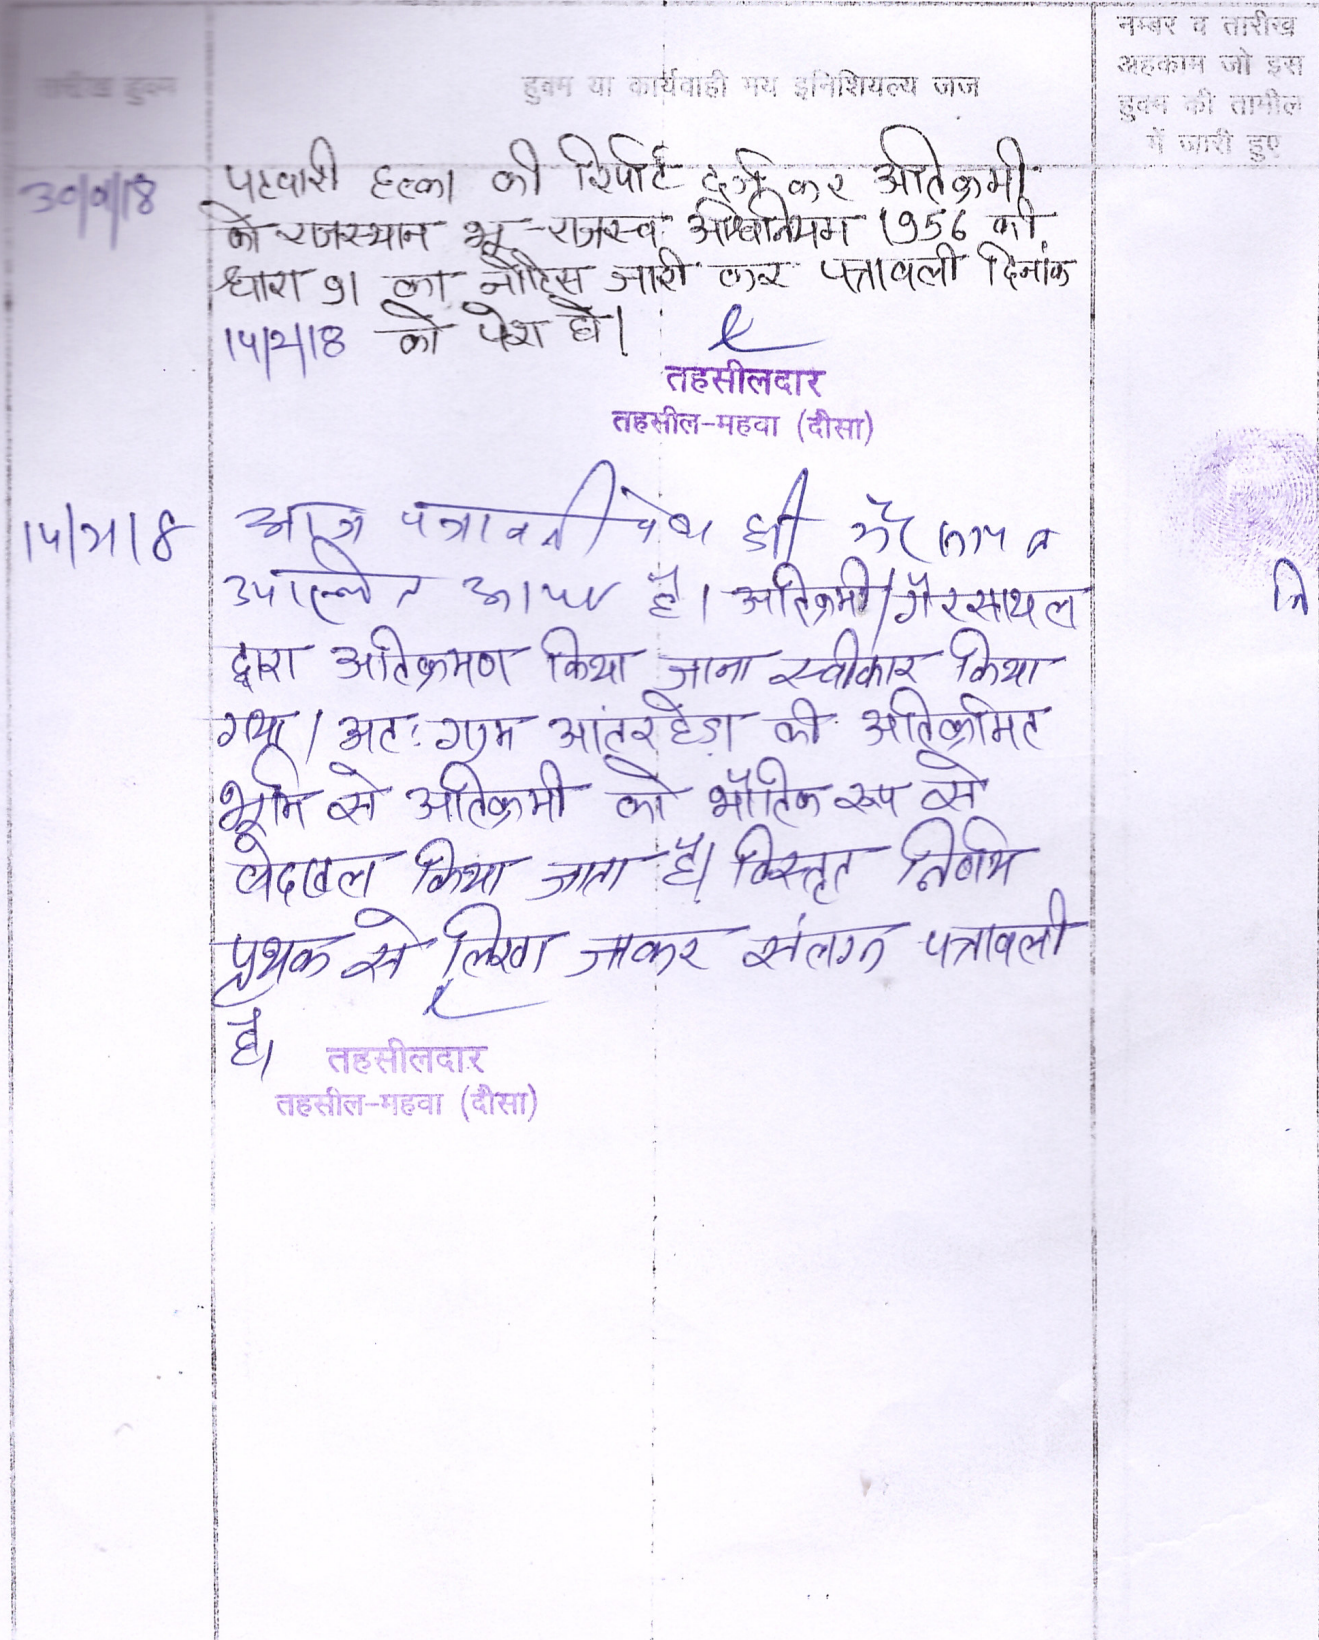 तारीख हुक्म
हुक्म या कार्यवाही मय इनिशियल्य जज
नम्बर व तारीख
अहकाम जो इस
हुक्म की तामील
में जारी हुए
पटवारी हल्का की रिपोर्ट दर्ज कर अतिक्रमी
को राजस्थान भू-राजस्व अधिनियम 1956 की
धारा 91 का नोटिस जारी कर पत्रावली दिनांक
14/2/18 को पेश हो।
तहसीलदार
तहसील-महवा (दौसा)
14/2/18
आज पत्रावली पेश हुई
है। अतिक्रमी/गैरसायल
द्वारा अतिक्रमण किया जाना स्वीकार किया
गया। अतः ग्राम आंतरहेडा की अतिक्रमित
भूमि से अतिक्रमी को भौतिक रूप से
बेदखल किया जाता है। विस्तृत निर्णय
प्रथक से लिखा जाकर संलग्न पत्रावली
है।
तहसीलदार
तहसील-महवा (दौसा)
नि